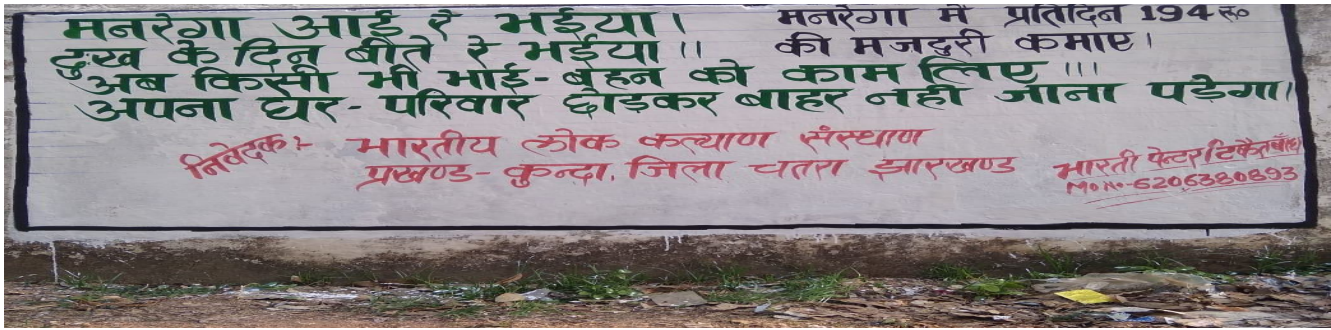 मनरेगा आई रे भईया।
दुःख के दिन बीते रे भईया।।
मनरेगा में प्रतिदिन 194 रू०
की मजदुरी कमाए।
अब किसी भी भाई-बहन को काम लिए ।।।
अपना घर-परिवार छोड़कर बाहर नही जाना पड़ेगा।
निवेदक:- भारतीय लोक कल्याण संस्थाण
प्रखण्ड-कुन्दा, जिला चतरा झारखण्ड
भारती पेन्टर
Mo No-6206380893